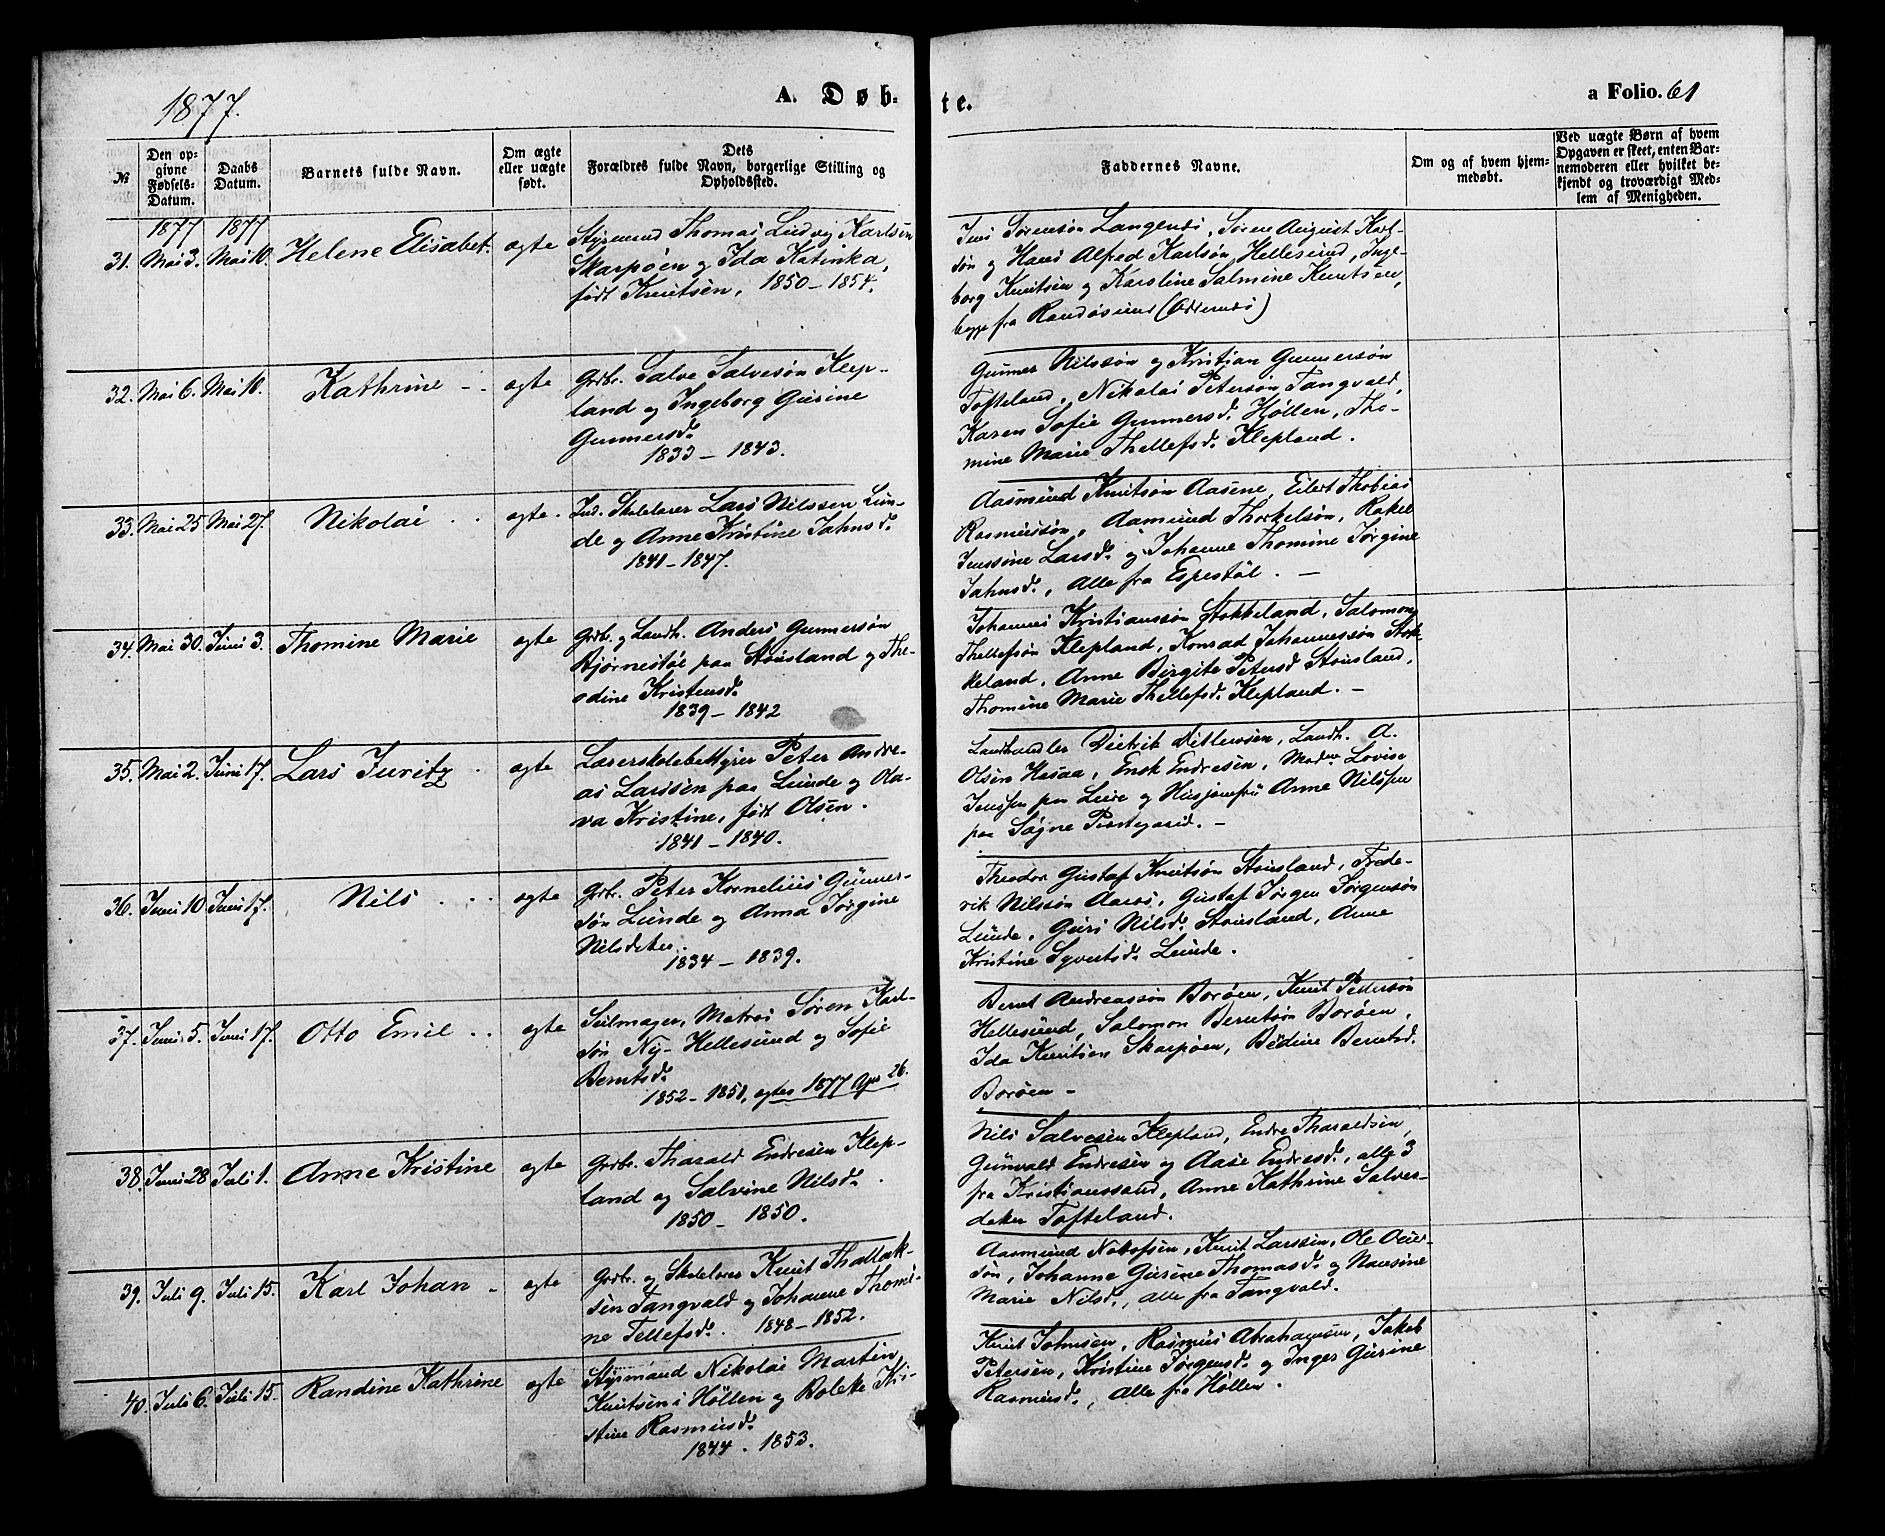 1877.
A. Døb-
te.
a Folio. 61
№
Den opgivne Fødsels-Datum.
Daabs Datum.
Barnets fulde Navn.
Om ægte eller uægte født.
Dets Forældres fulde Navn, borgerlige Stilling og Opholdssted.
Faddernes Navne.
Om og af hvem hjemmedøbt.
Ved uægte Børn af hvem Opgaven er skeet, enten Barnemoderen eller hvilket bekjendt og troværdigt Medlem af Menigheden.
1877 1877
31. Mai 3. Mai 10. Helene Elisabet. ægte
Styrmand Thomas Ludvig Karlsen
Skarpøen og Ida Katinka,
født Knutsen, 1850 - 1854.
Jens Sørensøn Langenes, Søren August Karl-
søn og Hans Alfred Karlsøn Hellesund, Inge-
borg Knutsen og Karoline Salmine Knutsen,
begge fra Randøsund (Oddernes)
32. Mai 6. Mai 10. Kathrine - ægte
Grdbr. Salve Salvesøn Klep-
land og Ingeborg Gurine
Gunnersd.
1833 - 1843.
Gunner Nilssøn og Kristian Gunnersøn
Tofteland, Nikolai Petersøn Tangvald,
Karen Sofie Gunnersd. Høllen, Tho-
mine Marie Thellefsd. Klepland.
33. Mai 25. Mai 27. Nikolai ægte
Ind. Skolelærer Lars Nilssen Lun-
de og Anne Kristine Jahnsd.
1841 - 1847.
Aasmund Knutsøn Aasene, Eilert Thobias
Rasmussøn, Aamund Thorkelsøn, Rakel
Jenssine Larsd. og Johanne Thomine Jørgine
Jahnsd., alle fra Espestøl. -
34. Mai 30. Juni 3. Thomine Marie ægte
Grdbr. og Landh. Anders Gunnersøn
Bjørnestøl paa Stousland og The-
odine Kristensd.
1839 - 1842
Johannes Kristianssøn Stokkeland, Salomon
Thellefsøn Klepland, Konrad Johannessøn Stok-
keland, Anne Birgite Petersd. Stousland,
Thomine Marie Thellefsd. Klepland. -
35. Mai 2. Juni 17. Lars Juritz ægte
Lærerskolebestyrer Peter Andre-
as Larssen paa Lunde og Ola-
va Kristine, født Olsen.
1841 - 1840.
Landhandler Dietrik Ditlevsen, Landh. A.
Olsen Hasaa, Ensk Endresen, Madm Lovise
Jenssen paa Leire og Husjomfru Anne Nilssen
paa Søgne Præstegaard. -
36. Juni 10. Juni 17. Nils ægte
Grdbr. Peter Kornelius Gunner-
søn Lunde og Anna Jørgine
Nilsdatter.
1834 - 1839.
Theodor Gustaf Knutsøn Stousland, Frede-
rik Nilssøn Aaros, Gustaf Jørgen Jørgensøn
Lunde, Guri Nilsd. Stousland, Anne
Kristine Syvertsd. Lunde.
37. Juni 5. Juni 17. Otto Emil ægte
Seilmager, Matros Søren Karl-
søn Ny-Hellesund og Sofie
Berntsd.
1852 - 1851, ægtev. 1877 Apr 26.
Bernt Andreassøn Borøen, Knut Pettersøn
Hellesund, Salomon Berntsøn Borøen,
Ida Knutsen Skarpøen, Bodine Berntsd.
Borøen -
38. Juni 28. Juli 1. Anne Kristine ægte
Grdbr. Tharald Endresen Klep-
land og Salvine Nilsd.
1850 - 1850.
Nils Salvesen Klepland, Endre Tharaldsen,
Gunvald Endresen og Aase Endresd., alle 3
fra Kristianssand, Anne Kathrine Salves-
datter Tofteland.
39. Juli 9. Juli 15. Karl Johan - ægte
Grdbr. og Skolelærer Knut Thallak-
sen Tangvald og Johanne Thomi-
ne Tellefsd. 1848 - 1852.
Aasmund Nikolsen, Knut Larssen, Ole Oles-
søn, Johanne Gurine Thomasd. og Maurine
Marie Nilsd., alle fra Tangvald.
40. Juli 6. Juli 15. Randine Kathrine ægte
Styrmand Nikolai Martin
Knutsen i Høllen og Boleke Kri-
stine Rasmusd.
1844 - 1853.
Knut Johnsen, Rasmus Abrahamsen, Jakob
Petersen, Kristine Jørgensd. og Inger Gurine
Rasmusd., alle fra Høllen.